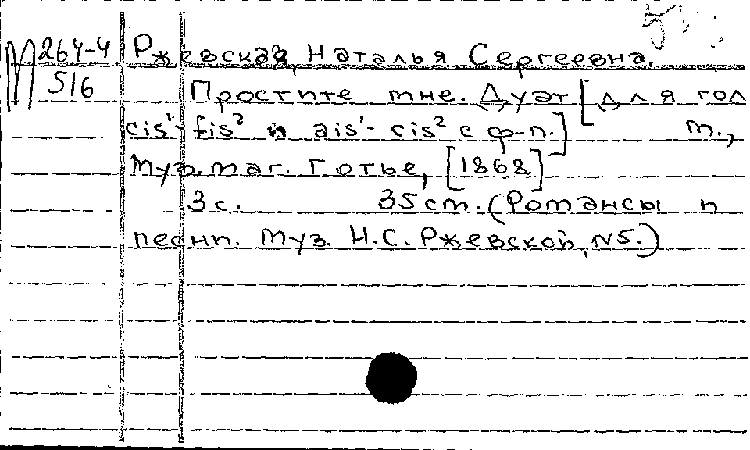 М 264-4 Ржевская, Наталья Сергеевна.
516 Простите мне. Дуэт [для гол
cis¹-fis² и ais¹-cis² с ф-п.] М.,
Муз. маг. Готье, [1868]
3с. 35 см. (Романсы и
песни. Муз. Н.С. Ржевской, N5.)